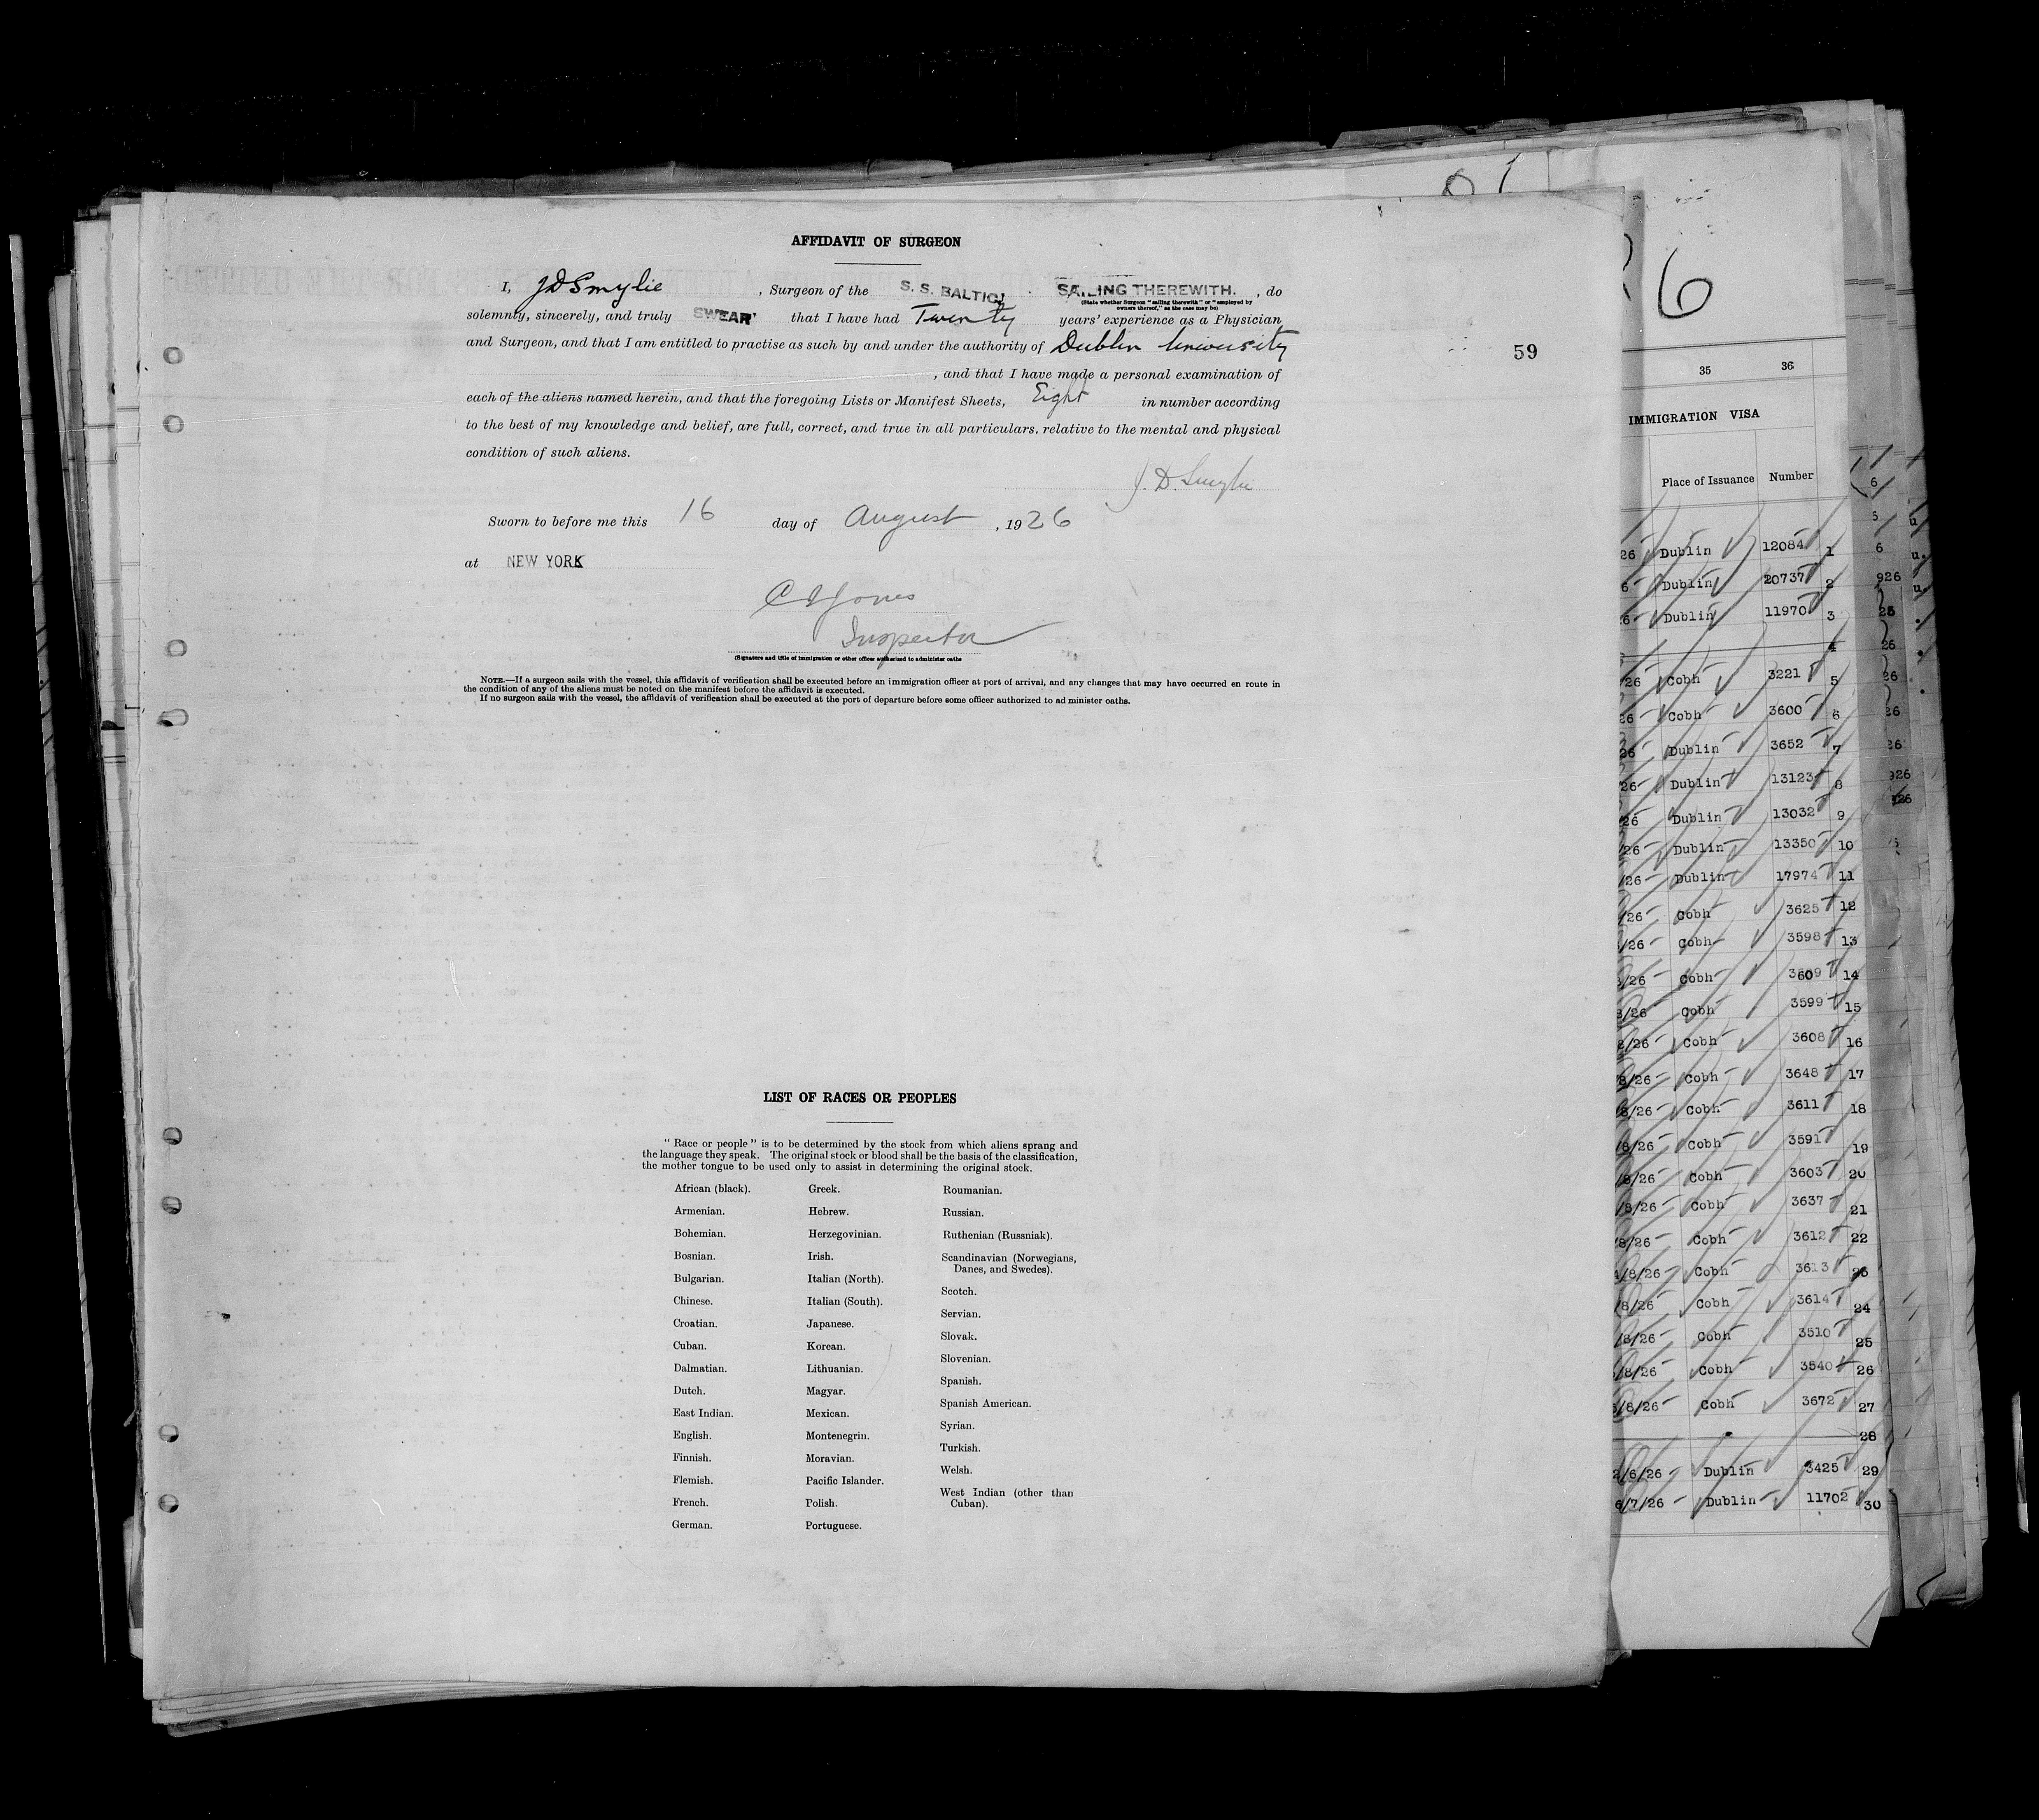 AFFIDAVIT OF SURGEON
I, J D Smylie, Surgeon of the S. S. BALTIC, SAILING THEREWITH., do
(State whether Surgeon "sailing therewith" or "employed by
owners thereof," as the case may be)
solemnly, sincerely, and truly SWEAR that I have had Twenty years' experience as a Physician
and Surgeon, and that I am entitled to practise as such by and under the authority of Dublin University
, and that I have made a personal examination of
each of the aliens named herein, and that the foregoing Lists or Manifest Sheets, Eight in number according
to the best of my knowledge and belief, are full, correct, and true in all particulars. relative to the mental and physical
condition of such aliens.
J. D. Smylie
Sworn to before me this 16 day of August, 1926
at NEW YORK
Jones
Inspector
(Signature and title of immigration or other officer authorized to administer oaths
NOTE.—If a surgeon sails with the vessel, this affidavit of verification shall be executed before an immigration officer at port of arrival, and any changes that may have occurred en route in
the condition of any of the aliens must be noted on the manifest before the affidavit is executed.
If no surgeon sails with the vessel, the affidavit of verification shall be executed at the port of departure before some officer authorized to ad minister oaths.
59
LIST OF RACES OR PEOPLES
"Race or people" is to be determined by the stock from which aliens sprang and
the language they speak. The original stock or blood shall be the basis of the classification,
the mother tongue to be used only to assist in determining the original stock.
African (black).
Armenian.
Bohemian.
Bosnian.
Bulgarian.
Chinese.
Croatian.
Cuban.
Dalmatian.
Dutch.
East Indian.
English.
Finnish.
Flemish.
French.
German.
Greek.
Hebrew.
Herzegovinian.
Irish.
Italian (North).
Italian (South).
Japanese.
Korean.
Lithuanian.
Magyar.
Mexican.
Montenegrin.
Moravian.
Pacific Islander.
Polish.
Portuguese.
Roumanian.
Russian.
Ruthenian (Russniak).
Scandinavian (Norwegians,
Danes, and Swedes).
Scotch.
Servian.
Slovak.
Slovenian.
Spanish.
Spanish American.
Syrian.
Turkish.
Welsh.
West Indian (other than
Cuban).
6
35 36
IMMIGRATION VISA
Place of Issuance Number
26 Dublin 12084 1
6 Dublin 20737 2
6 Dublin 11970 3
4
/26 Cobh 3221 5
26 Cobh 3600 6
26 Dublin 3652 7
/26 Dublin 13123 8
26 Dublin 13032 9
/26 Dublin 13350 10
/26 Dublin 17974 11
/26 Cobh 3625 12
/26 Cobh 3598 13
/26 Cobh 3609 14
8/26 Cobh 3599 15
8/26 Cobh 3608 16
/8/26 Cobh 3648 17
/8/26 Cobh 3611 18
/8/26 Cobh 3591 19
/8/26 Cobh 3603 20
/8/26 Cobh 3637 21
/8/26 Cobh 3612 22
/8/26 Cobh 3613 23
/8/26 Cobh 3614 24
/8/26 Cobh 3510 25
/8/26 Cobh 3540 26
/8/26 Cobh 3672 27
28
2/6/26 Dublin 3425 29
6/7/26 Dublin 11702 30